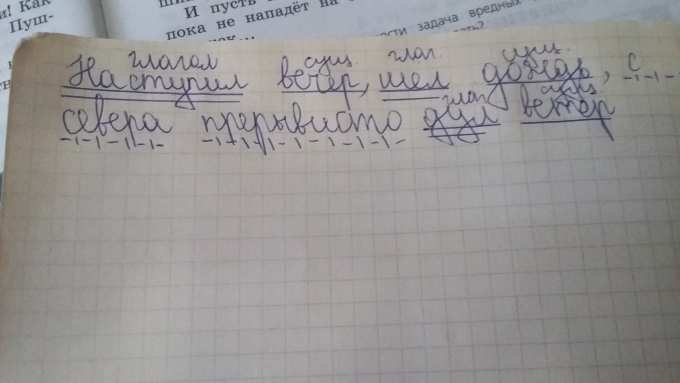 и! Как
Пуш-
И пусть
пока не нападёт на
ости задача вредных
глагол сущ. глаг. сущ.
Наступил вечер, шел дождь, с
глаг. сущ.
севера прерывисто дул ветер